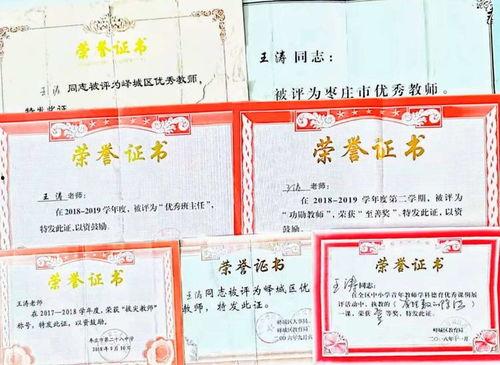 荣誉证书
王涛
同志被评为峄城区优秀教师,
特发此证
王涛同志:
被评为枣庄市优秀教师。
荣誉证书
王涛老师:
在2018-2019学年度,被评为“优秀班主任”,
特发此证,以资鼓励。
荣誉证书
王涛老师:
在2018-2019学年度第二学期,被评为
“功勋教师”,荣获“至善奖”,特发此证,以资
鼓励。
荣誉证书
王涛老师
在2017-2018学年度,荣获“拔尖教师”
称号,特发此证,以资鼓励。
枣庄市第二十八中学
2018年9月10日
荣誉证书
王涛同志被评为峄城区优秀
教师,特发此证。
峄城区人事局
峄城区教育局
二〇〇六年九月
荣誉证书
王涛同志:
在全区中小学青年教师学科德育优秀课例展
评活动中,执教的《
一课,荣获 等奖。特发此证。
峄城区教育局